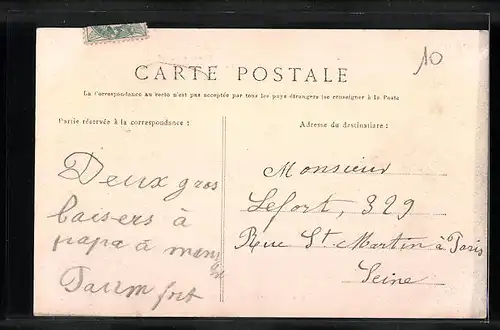 10
CARTE POSTALE
La Correspondance au recto n'est pas acceptée par tous les pays étrangers (se renseigner à la Poste
Partie réservée à la correspondance :
Adresse du destinataire :
Deux gros
baisers à
papa à
fort
Monsieur
Lefort, 329
Rue St. Martin à Paris
Seine